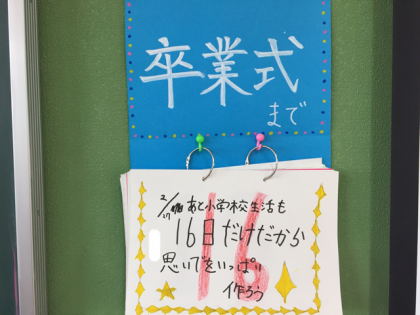 卒業式
まで
16
2/17 あと小学校生活も
16日だけだから
思いでをいっぱい
作ろう